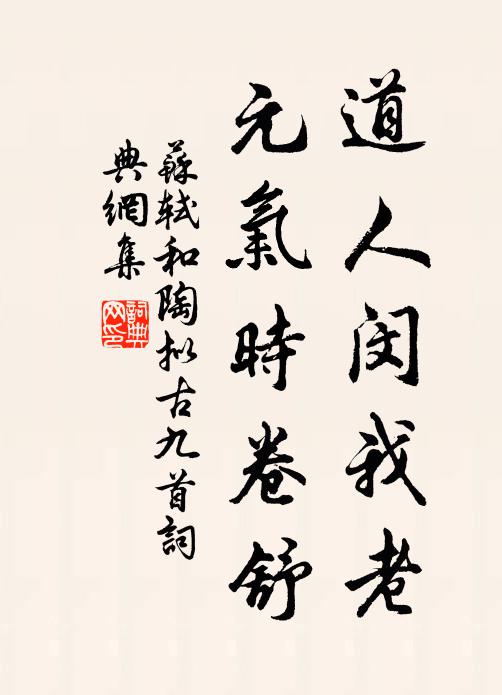 道人闵我老
元氣時卷舒
蘇軾和陶拟古九首詞
典網集
詞典
网印